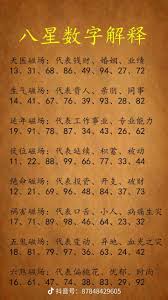 八星数字解释
天医磁场：代表钱财、婚姻、业绩
13、31、68、86、49、94、27、72
生气磁场：代表贵人、亲朋、同事
14、41、67、76、39、93、28、82
延年磁场：代表工作事业、专业能力
19、91、78、87、34、43、26、62
伏位磁场：代表延续、积蓄、被动
11、22、88、99、66、77、33、44
绝命磁场：代表投资、开支、破财
12、21、69、96、84、48、37、73
祸害磁场：代表口舌、小人、病痛生灾
17、71、89、98、46、64、23、32
五鬼磁场：代表变动、异地、血光之灾
18、81、79、97、36、63、24、42
六煞磁场：代表偏桃花、忧郁、时尚
16、61、47、74、38、83、29、92
抖音号：87848429605